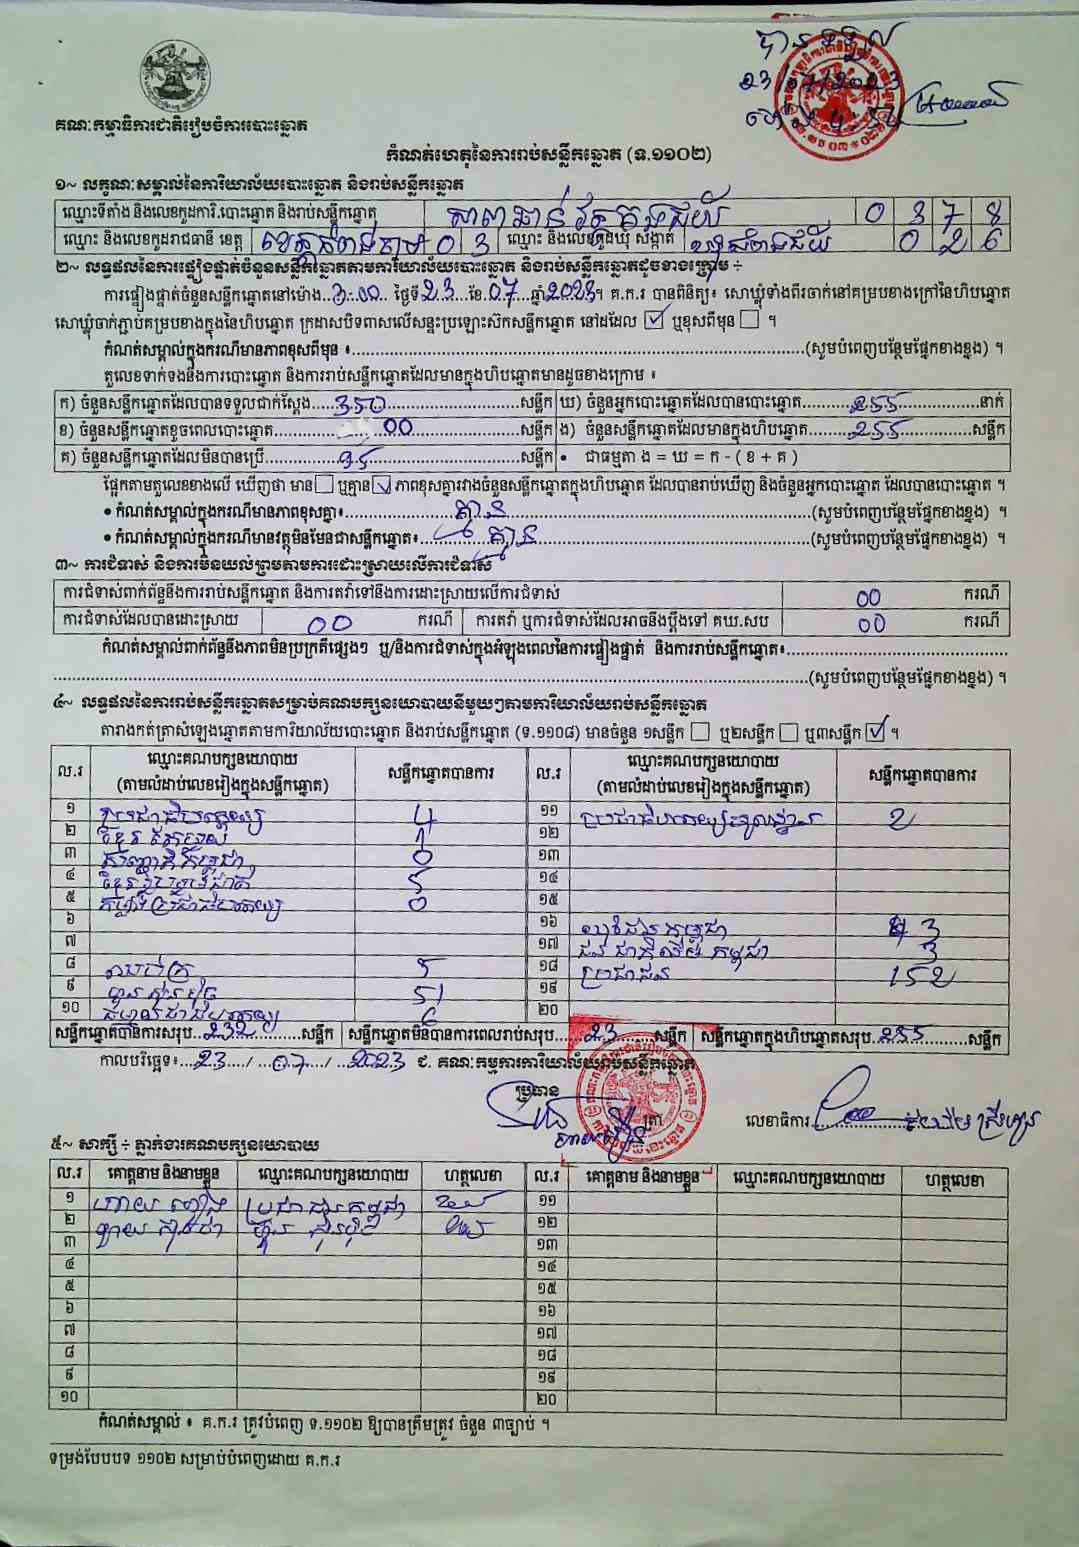 បានទទួល
23/07/2023
ម៉ោង
គណៈកម្មាធិការជាតិរៀបចំការបោះឆ្នោត
កំណត់ហេតុនៃការរាប់សន្លឹកឆ្នោត (ទ.១១០២)
១~ លក្ខណៈសម្គាល់នៃការិយាល័យបោះឆ្នោត និងរាប់សន្លឹកឆ្នោត
ឈ្មោះទីតាំង និងលេខកូដការិ.បោះឆ្នោត និងរាប់សន្លឹកឆ្នោត 0 3 7 8
ឈ្មោះ និងលេខកូដរាជធានី ខេត្ត 0 3 ឈ្មោះ និងលេខកូដឃុំ សង្កាត់ 0 2 6
២~ លទ្ធផលនៃការផ្ទៀងផ្ទាត់ចំនួនសន្លឹកឆ្នោតតាមការិយាល័យបោះឆ្នោត និងរាប់សន្លឹកឆ្នោតដូចខាងក្រោម ÷
ការផ្ទៀងផ្ទាត់ចំនួនសន្លឹកឆ្នោតនៅម៉ោង..3:00..ថ្ងៃទី23...ខែ.07...ឆ្នាំ2023។ គ.ក.រ បានពិនិត្យ៖ សោឃ្លុំទាំងពីរចាក់នៅគម្របខាងក្រៅនៃហិបឆ្នោត
សោឃ្លុំចាក់ភ្ជាប់គម្របខាងក្នុងនៃហិបឆ្នោត ក្រដាសបិទពាសលើសន្ទះប្រឡោះស៊កសន្លឹកឆ្នោត នៅដដែល ☑ ឬខុសពីមុន ☐ ។
កំណត់សម្គាល់ក្នុងករណីមានភាពខុសពីមុន ៖..........(សូមបំពេញបន្ថែមផ្នែកខាងខ្នង) ។
តួលេខទាក់ទងនឹងការបោះឆ្នោត និងការរាប់សន្លឹកឆ្នោតដែលមានក្នុងហិបឆ្នោតមានដូចខាងក្រោម ៖
ក) ចំនួនសន្លឹកឆ្នោតដែលបានទទួលជាក់ស្តែង.....350.....សន្លឹក ឃ) ចំនួនអ្នកបោះឆ្នោតដែលបានបោះឆ្នោត.....255.....នាក់
ខ) ចំនួនសន្លឹកឆ្នោតខូចពេលបោះឆ្នោត.....00.....សន្លឹក ង) ចំនួនសន្លឹកឆ្នោតដែលមានក្នុងហិបឆ្នោត.....255.....សន្លឹក
គ) ចំនួនសន្លឹកឆ្នោតដែលមិនបានប្រើ.....95.....សន្លឹក • ជាធម្មតា ង = ឃ = ក - ( ខ + គ )
ផ្អែកតាមតួលេខខាងលើ ឃើញថា មាន ☐ ឬគ្មាន ☑ ភាពខុសគ្នារវាងចំនួនសន្លឹកឆ្នោតក្នុងហិបឆ្នោត ដែលបានរាប់ឃើញ និងចំនួនអ្នកបោះឆ្នោត ដែលបានបោះឆ្នោត ។
• កំណត់សម្គាល់ក្នុងករណីមានភាពខុសគ្នា៖.....គ្មាន.....(សូមបំពេញបន្ថែមផ្នែកខាងខ្នង) ។
• កំណត់សម្គាល់ក្នុងករណីមានវត្ថុមិនមែនជាសន្លឹកឆ្នោត៖.....គ្មាន.....(សូមបំពេញបន្ថែមផ្នែកខាងខ្នង) ។
៣~ ការជំទាស់ និងការមិនយល់ព្រមតាមការដោះស្រាយលើការជំទាស់
ការជំទាស់ពាក់ព័ន្ធនឹងការរាប់សន្លឹកឆ្នោត និងការតវ៉ាទៅនឹងការដោះស្រាយលើការជំទាស់ 00 ករណី
ការជំទាស់ដែលបានដោះស្រាយ 00 ករណី ការតវ៉ា ឬការជំទាស់ដែលអាចនឹងប្តឹងទៅ គឃ.សប 00 ករណី
កំណត់សម្គាល់ពាក់ព័ន្ធនឹងភាពមិនប្រក្រតីផ្សេងៗ ឬ/និងការជំទាស់ក្នុងអំឡុងពេលនៃការផ្ទៀងផ្ទាត់ និងការរាប់សន្លឹកឆ្នោត៖..........
..........(សូមបំពេញបន្ថែមផ្នែកខាងខ្នង) ។
៤~ លទ្ធផលនៃការរាប់សន្លឹកឆ្នោតសម្រាប់គណបក្សនយោបាយនីមួយៗតាមការិយាល័យរាប់សន្លឹកឆ្នោត
តារាងកត់ត្រាសំឡេងឆ្នោតតាមការិយាល័យបោះឆ្នោត និងរាប់សន្លឹកឆ្នោត (ទ.១១០៨) មានចំនួន ១សន្លឹក ☐ ឬ២សន្លឹក ☐ ឬ៣សន្លឹក ☑ ។
ល.រ ឈ្មោះគណបក្សនយោបាយ (តាមលំដាប់លេខរៀងក្នុងសន្លឹកឆ្នោត) សន្លឹកឆ្នោតបានការ ល.រ ឈ្មោះគណបក្សនយោបាយ (តាមលំដាប់លេខរៀងក្នុងសន្លឹកឆ្នោត) សន្លឹកឆ្នោតបានការ
១ 4 ១១ ប្រជាធិបតេយ្យមូលដ្ឋាន 2
២ 1 ១២
៣ 0 ១៣
៤ 5 ១៤
៥ 0 ១៥
៦ ១៦ 3
៧ ១៧ ជនជាតិដើមកម្ពុជា 3
៨ 5 ១៨ ប្រជាជន 152
៩ ហ៊្វុនស៊ិនប៉ិច 51 ១៩
១០ 6 ២០
សន្លឹកឆ្នោតបានការសរុប..232.....សន្លឹក សន្លឹកឆ្នោតមិនបានការពេលរាប់សរុប.....23.....សន្លឹក សន្លឹកឆ្នោតក្នុងហិបឆ្នោតសរុប.255.....សន្លឹក
កាលបរិច្ឆេទ៖...23..../...07..../..2023 ជ. គណៈកម្មការការិយាល័យរាប់សន្លឹកឆ្នោត
ប្រធាន
លេខាធិការ
៥~ សាក្សី ÷ ភ្នាក់ងារគណបក្សនយោបាយ
ល.រ គោត្តនាម និងនាមខ្លួន ឈ្មោះគណបក្សនយោបាយ ហត្ថលេខា ល.រ គោត្តនាម និងនាមខ្លួន ឈ្មោះគណបក្សនយោបាយ ហត្ថលេខា
១ ប្រជាជនកម្ពុជា ១១
២ ហ៊្វុនស៊ិនប៉ិច ១២
៣ ១៣
៤ ១៤
៥ ១៥
៦ ១៦
៧ ១៧
៨ ១៨
៩ ១៩
១០ ២០
កំណត់សម្គាល់ ៖ គ.ក.រ ត្រូវបំពេញ ទ.១១០២ ឱ្យបានត្រឹមត្រូវ ចំនួន ៣ច្បាប់ ។
ទម្រង់បែបបទ ១១០២ សម្រាប់បំពេញដោយ គ.ក.រ